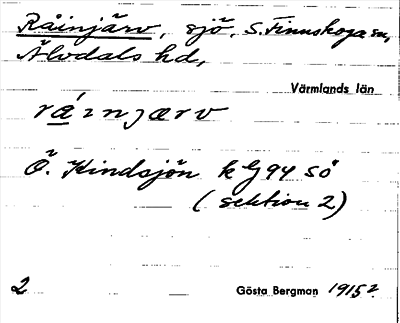 Råinjärv, sjö, S. Finnskoga sn,
Älvdals hd,
Värmlands län
ráɪnjærv
Ö. Kindsjön k G 94 sö
(sektion 2)
2 Gösta Bergman 1915?